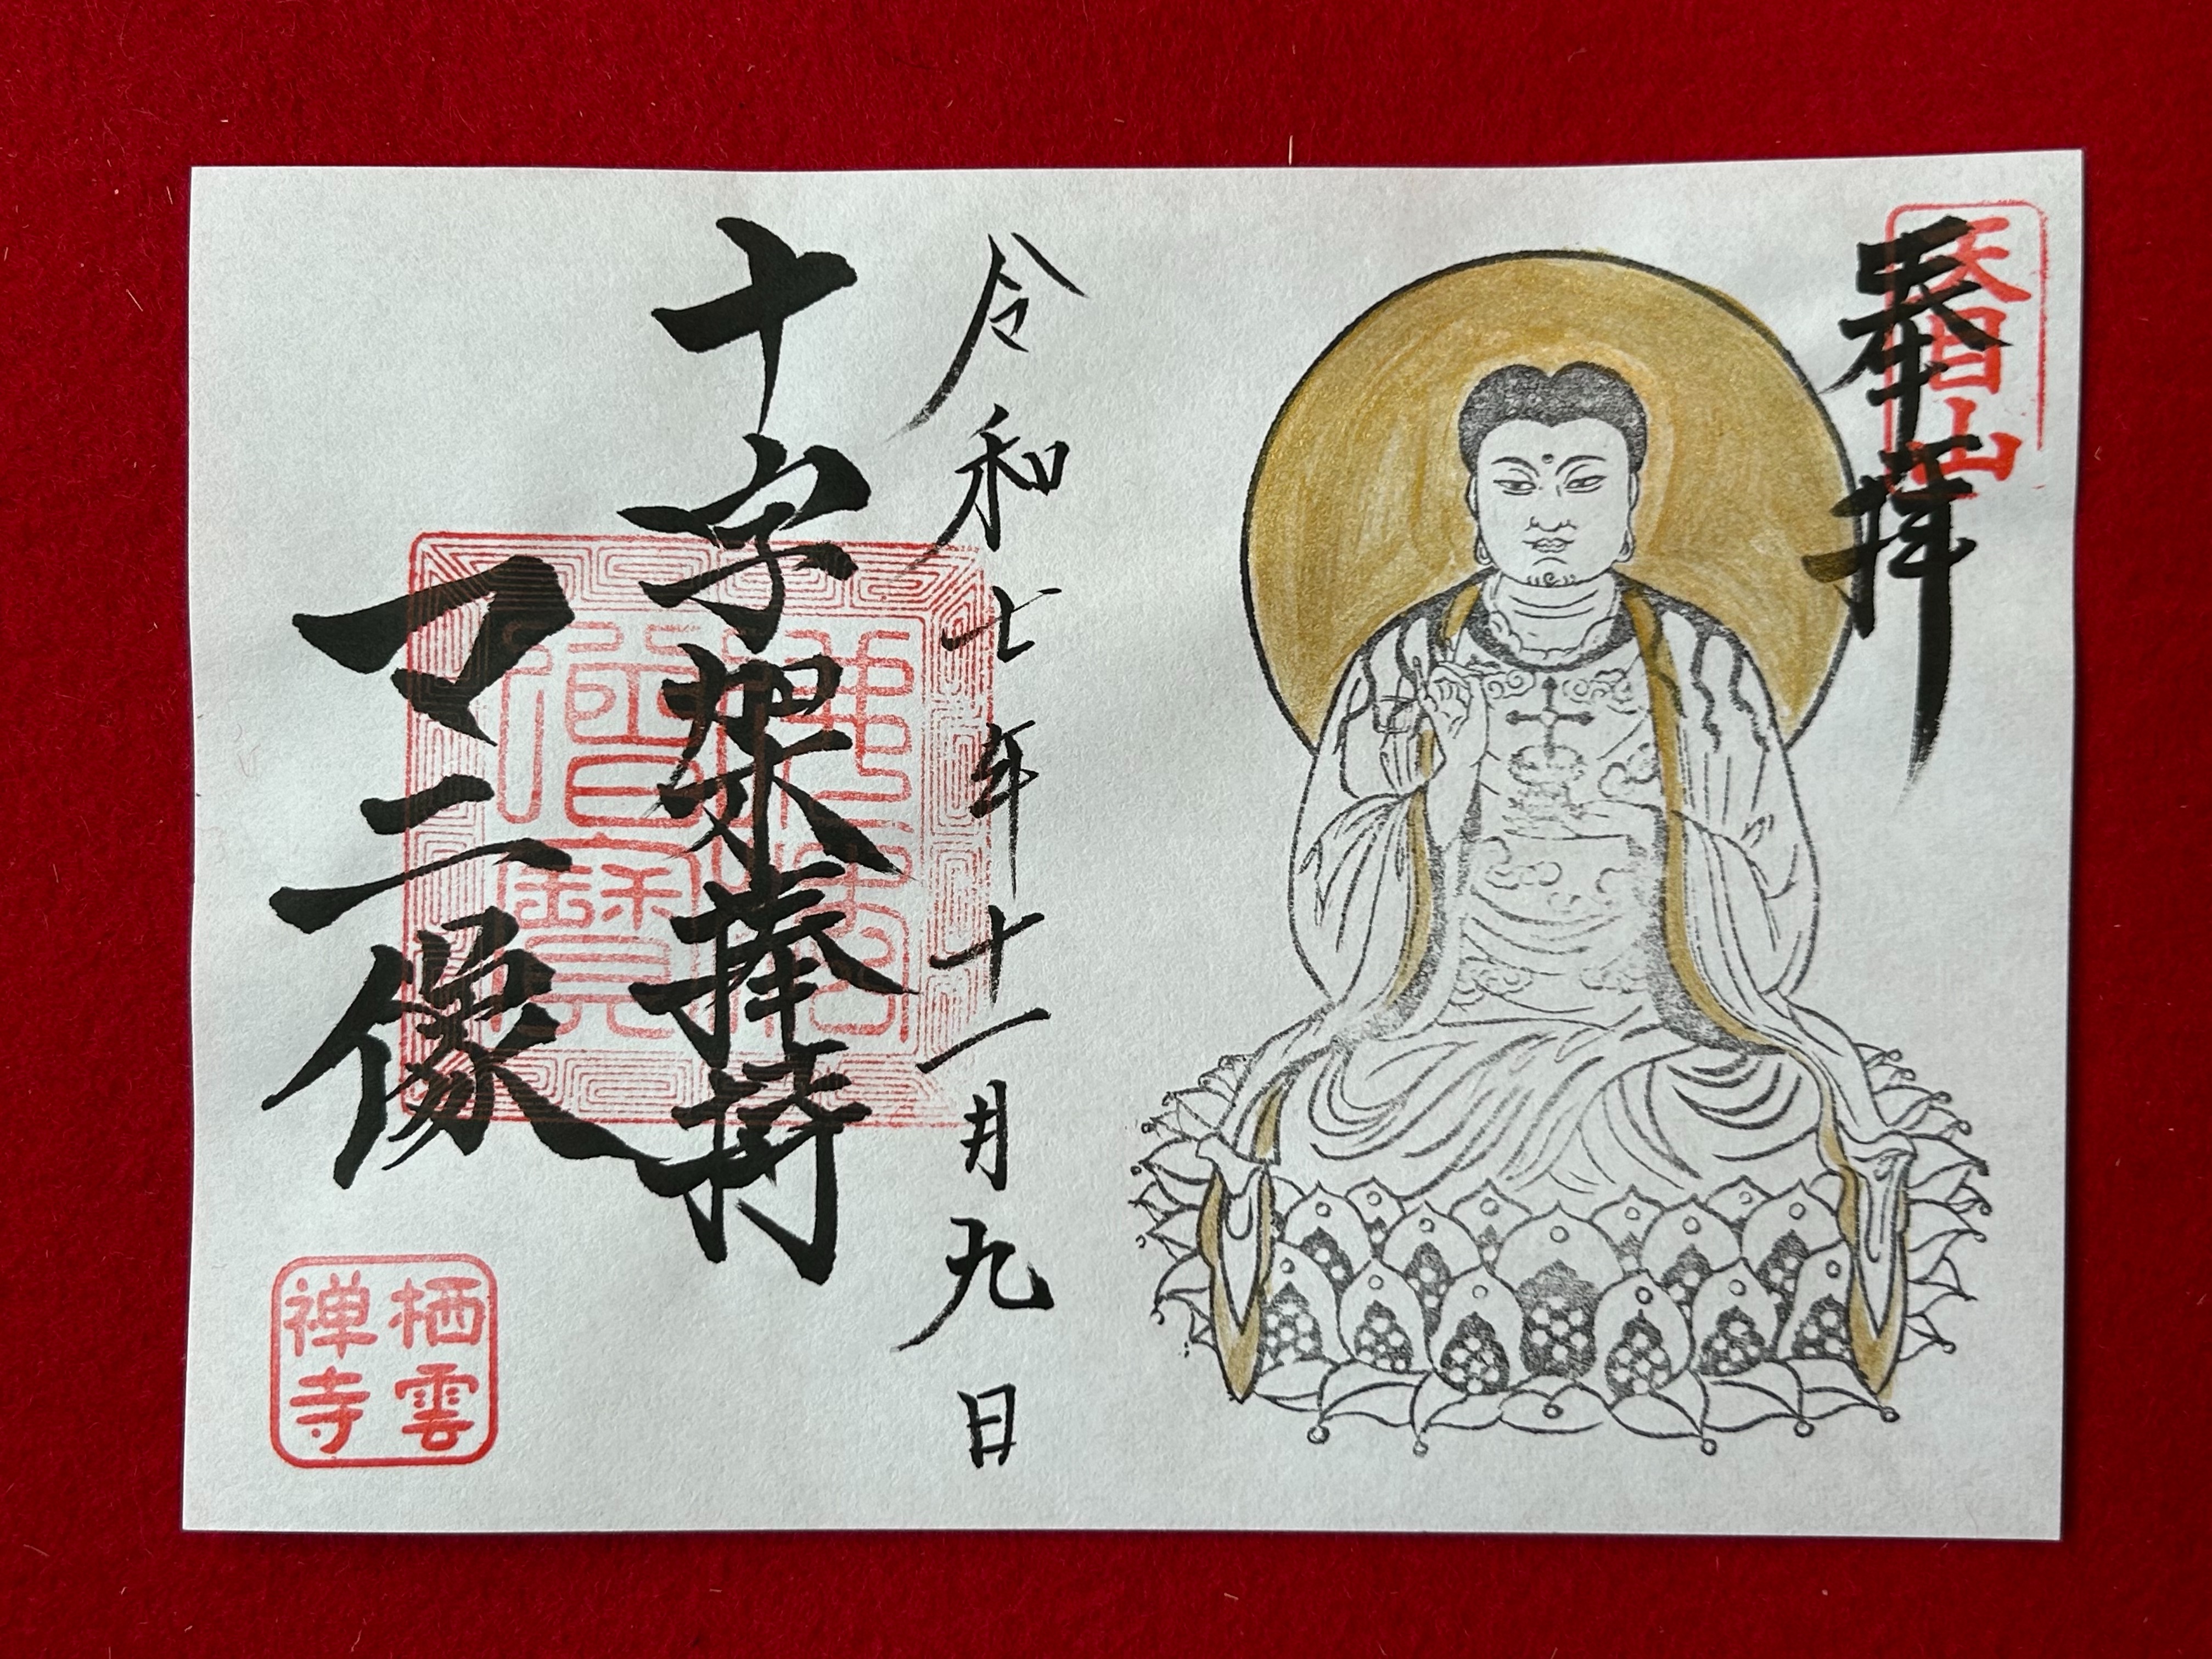 奉拝
天目山
令和七年十一月九日
十字架捧持
マニ像
佛法僧寳
栖雲
禅寺